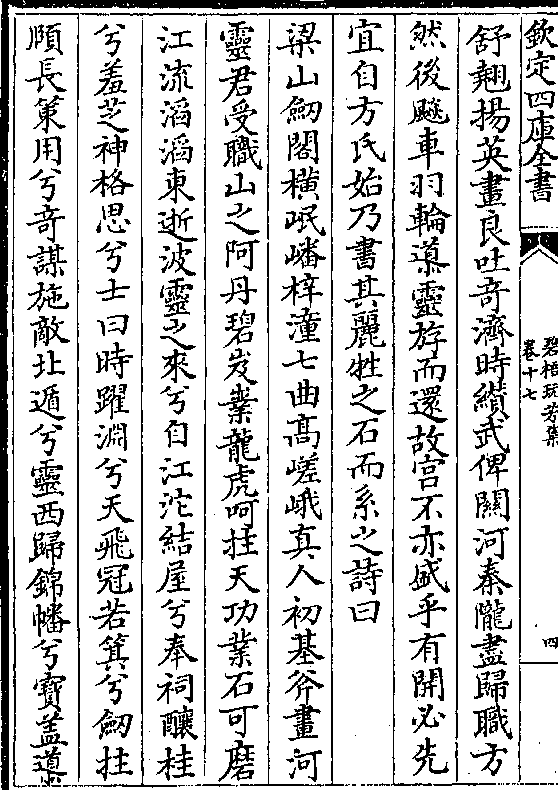 欽定四庫全書
碧梧玩芳集
卷十七
四
舒翹揚英畫良吐奇濟時績武俾關河秦隴盡歸職方
然後飈車羽輪導靈游而還故宫不亦盛乎有開必先
宜自方氏始乃書其麗牲之石而系之詩曰
梁山劒閣橫岷嶓梓潼七曲髙嵯峨真人初基斧畫河
靈君受職山之阿丹碧岌嶪龍虎呵拄天功業石可磨
江流滔滔東逝波靈之來兮自江沱結屋兮奉祠釀桂
兮羞芝神格思兮士曰時躍淵兮天飛冠若箕兮劒拄
頤長策用兮奇謀施敵北遁兮靈西歸錦幡兮寳盖導